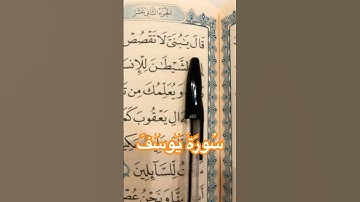 الجزء الثاني عشر
قَالَ يَٰبُنَىَّ لَا تَقۡصُصۡ
ٱلشَّيۡطَٰنَ لِلۡإِنسَٰ
وَيُعَلِّمُكَ مِن تَ
ءَالِ يَعۡقُوبَ كَمَا
سُورَةُ يُوسُفَ
لِّلسَّآئِلِينَ
نَّا وَنَحۡنُ عُصۡ